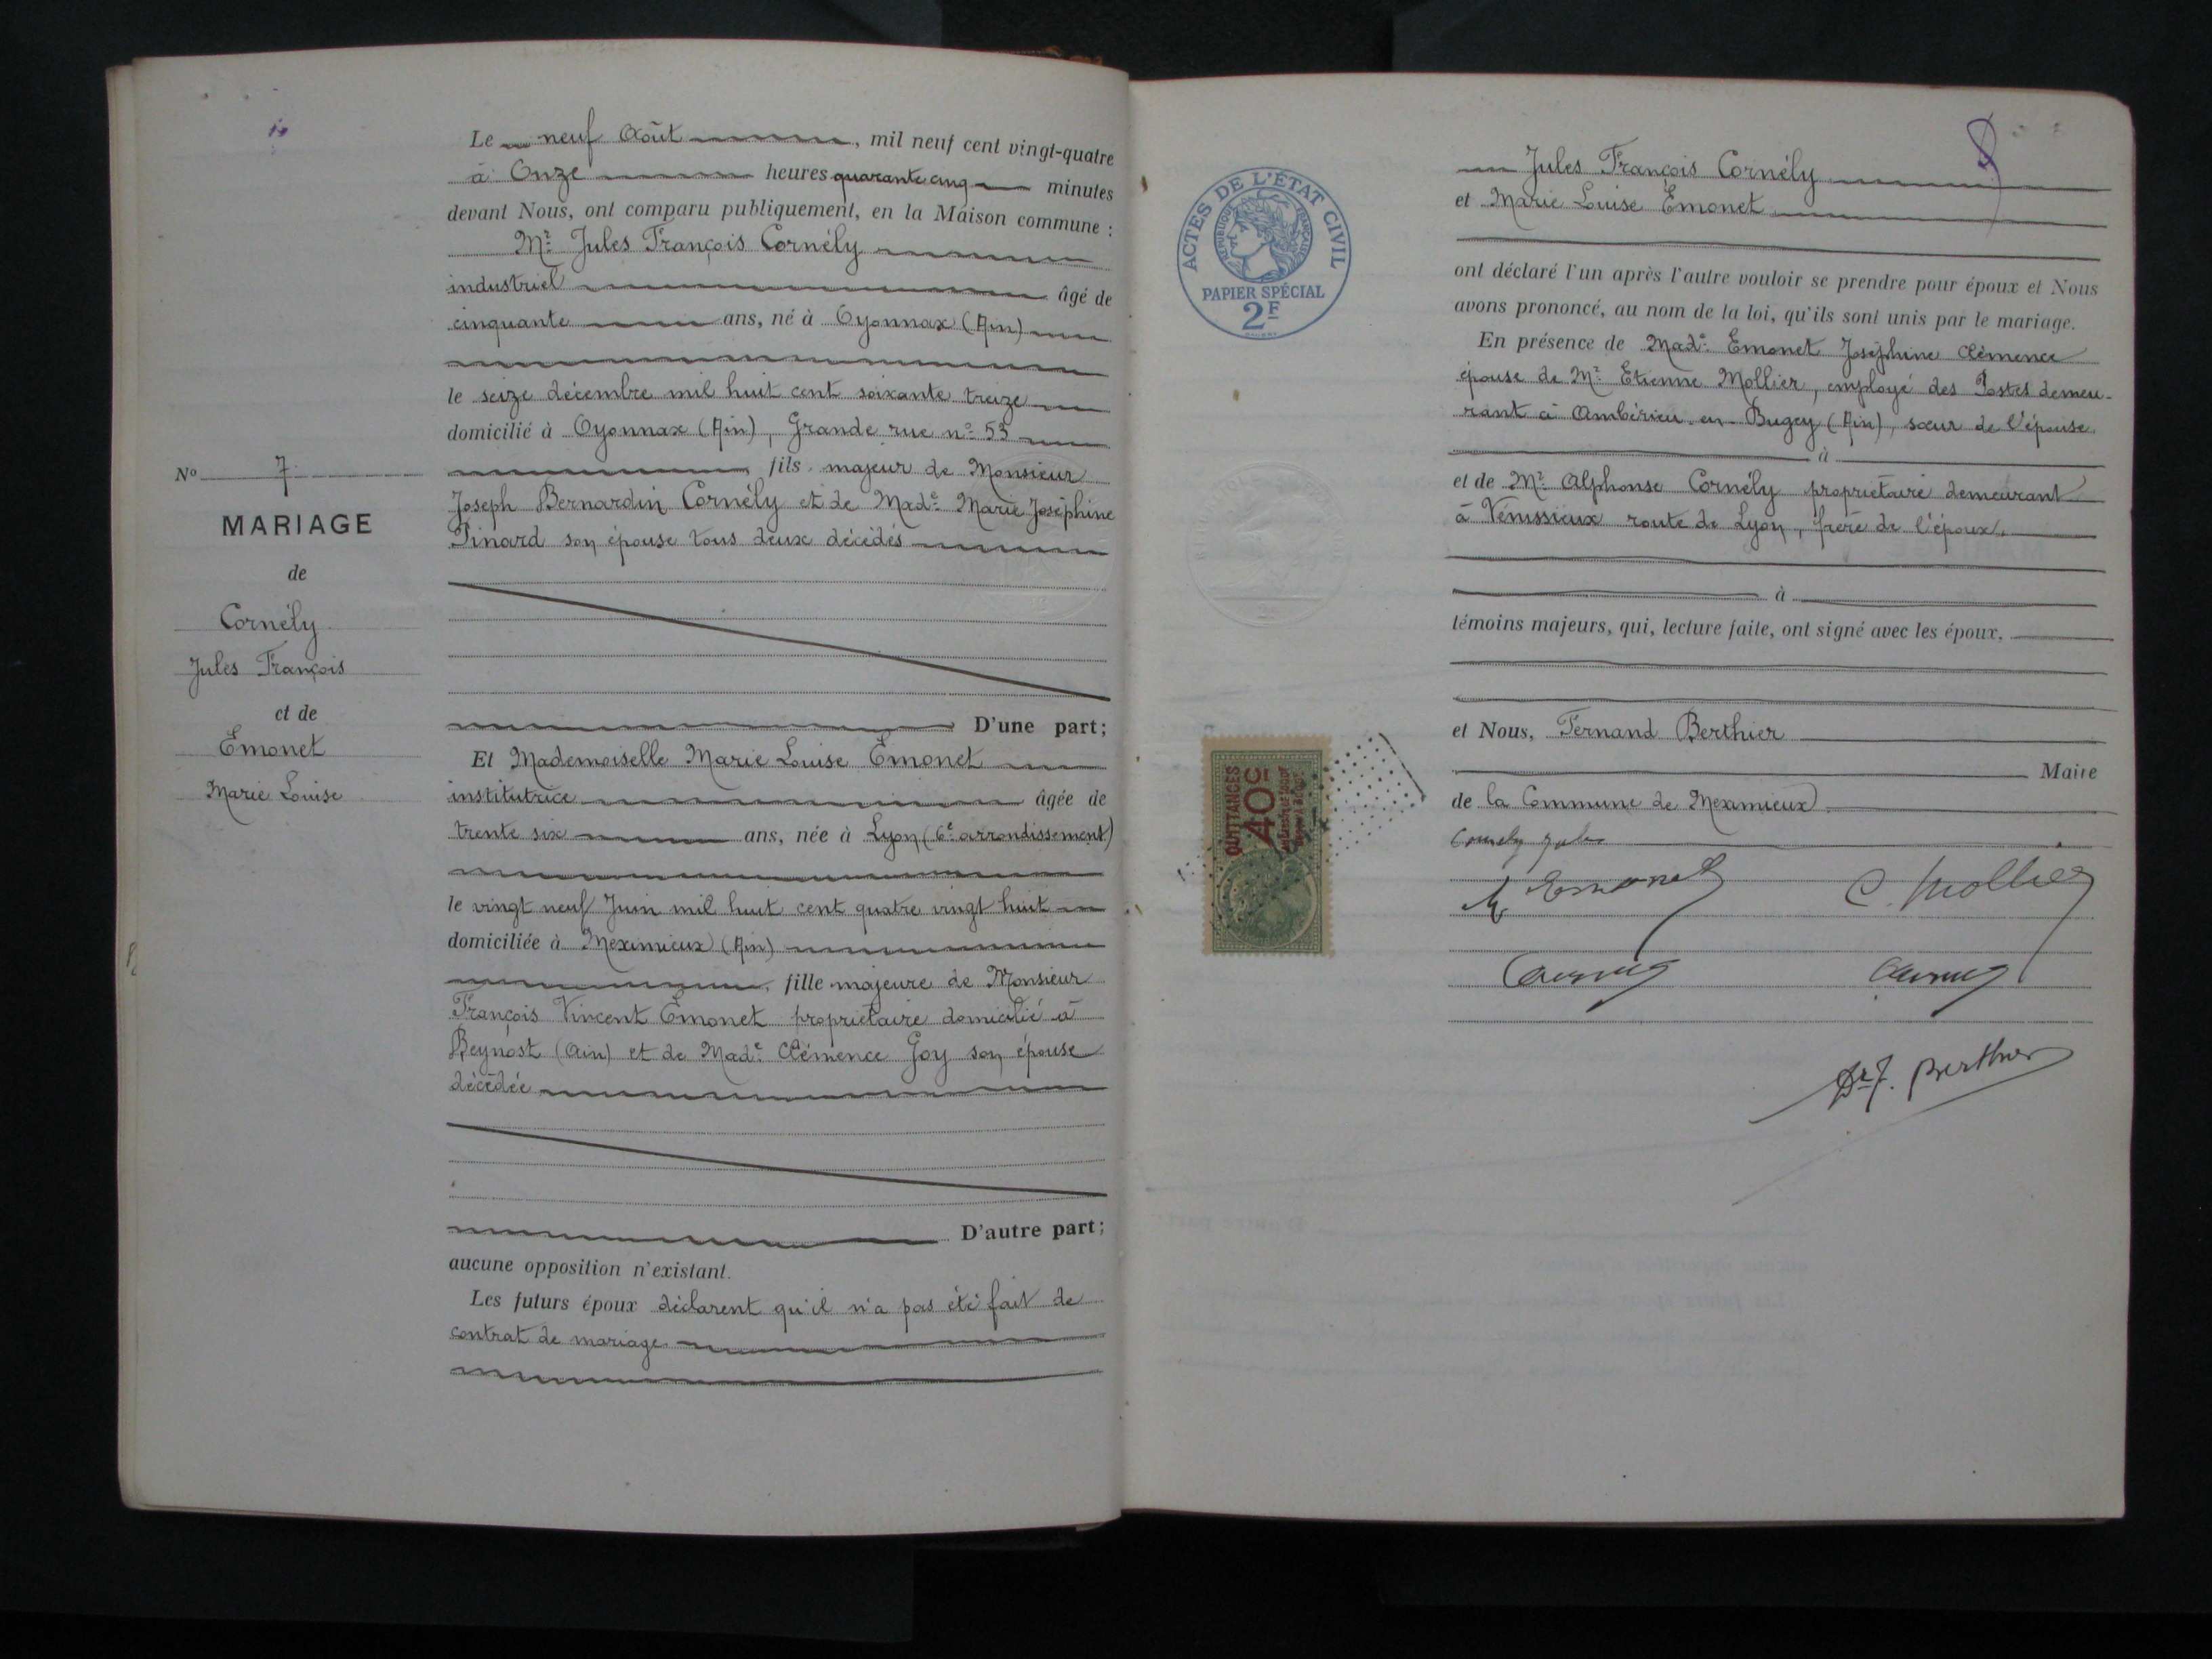 Le neuf Août, mil neuf cent vingt-quatre
à Onze heures quarante cinq minutes
devant Nous, ont comparu publiquement, en la Maison commune :
Mr Jules François Cornély
industriel âgé de
cinquante ans, né à Oyonnax (Ain)
le seize décembre mil huit cent soixante treize
domicilié à Oyonnax (Ain), Grande rue no 53
fils majeur de Monsieur
Joseph Bernardin Cornély et de Made Marie Joséphine
Pinard son épouse tous deux décédés
D'une part;
No 7
MARIAGE
de
Cornély
Jules François
et de
Emonet
Marie Louise
Et Mademoiselle Marie Louise Emonet
institutrice âgée de
trente six ans, née à Lyon (6e arrondissement)
le vingt neuf Juin mil huit cent quatre vingt huit
domiciliée à Meximieux (Ain)
fille majeure de Monsieur
François Vincent Emonet propriétaire domicilié à
Beynost (Ain) et de Made Clémence Goy son épouse
décédée
D'autre part;
aucune opposition n'existant.
Les futurs époux déclarent qu'il n'a pas été fait de
contrat de mariage.
ACTES DE L'ÉTAT CIVIL
RÉPUBLIQUE FRANÇAISE
PAPIER SPÉCIAL
2F
8
Jules François Cornély
et Marie Louise Emonet
ont déclaré l'un après l'autre vouloir se prendre pour époux et Nous
avons prononcé, au nom de la loi, qu'ils sont unis par le mariage.
En présence de Made Emonet Joséphine Clémence
épouse de Mr Etienne Mollier, employé des Postes demeu-
rant à Ambérieu-en-Bugey (Ain), sœur de l'épouse
à
et de Mr Alphonse Cornély propriétaire demeurant
à Vénissieux route de Lyon, frère de l'époux.
à
témoins majeurs, qui, lecture faite, ont signé avec les époux,
et Nous, Fernand Berthier
Maire
de la Commune de Meximieux
QUITTANCES
40c
Cornely Jules
M Emonet
C. Mollier
Dr F. Berthier